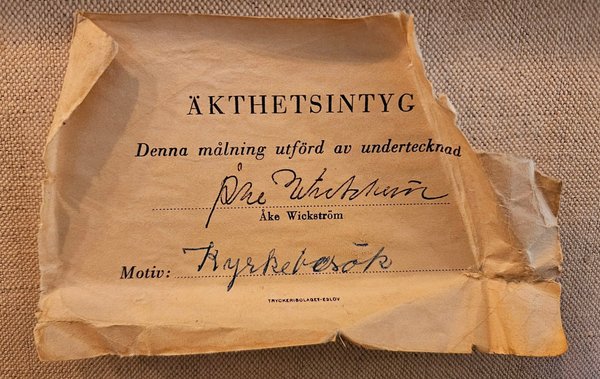 ÄKTHETSINTYG
Denna målning utförd av undertecknad
Åke Wickström
Åke Wickström
Motiv: Kyrkebesök
TRYCKERIBOLAGET-ESLÖV